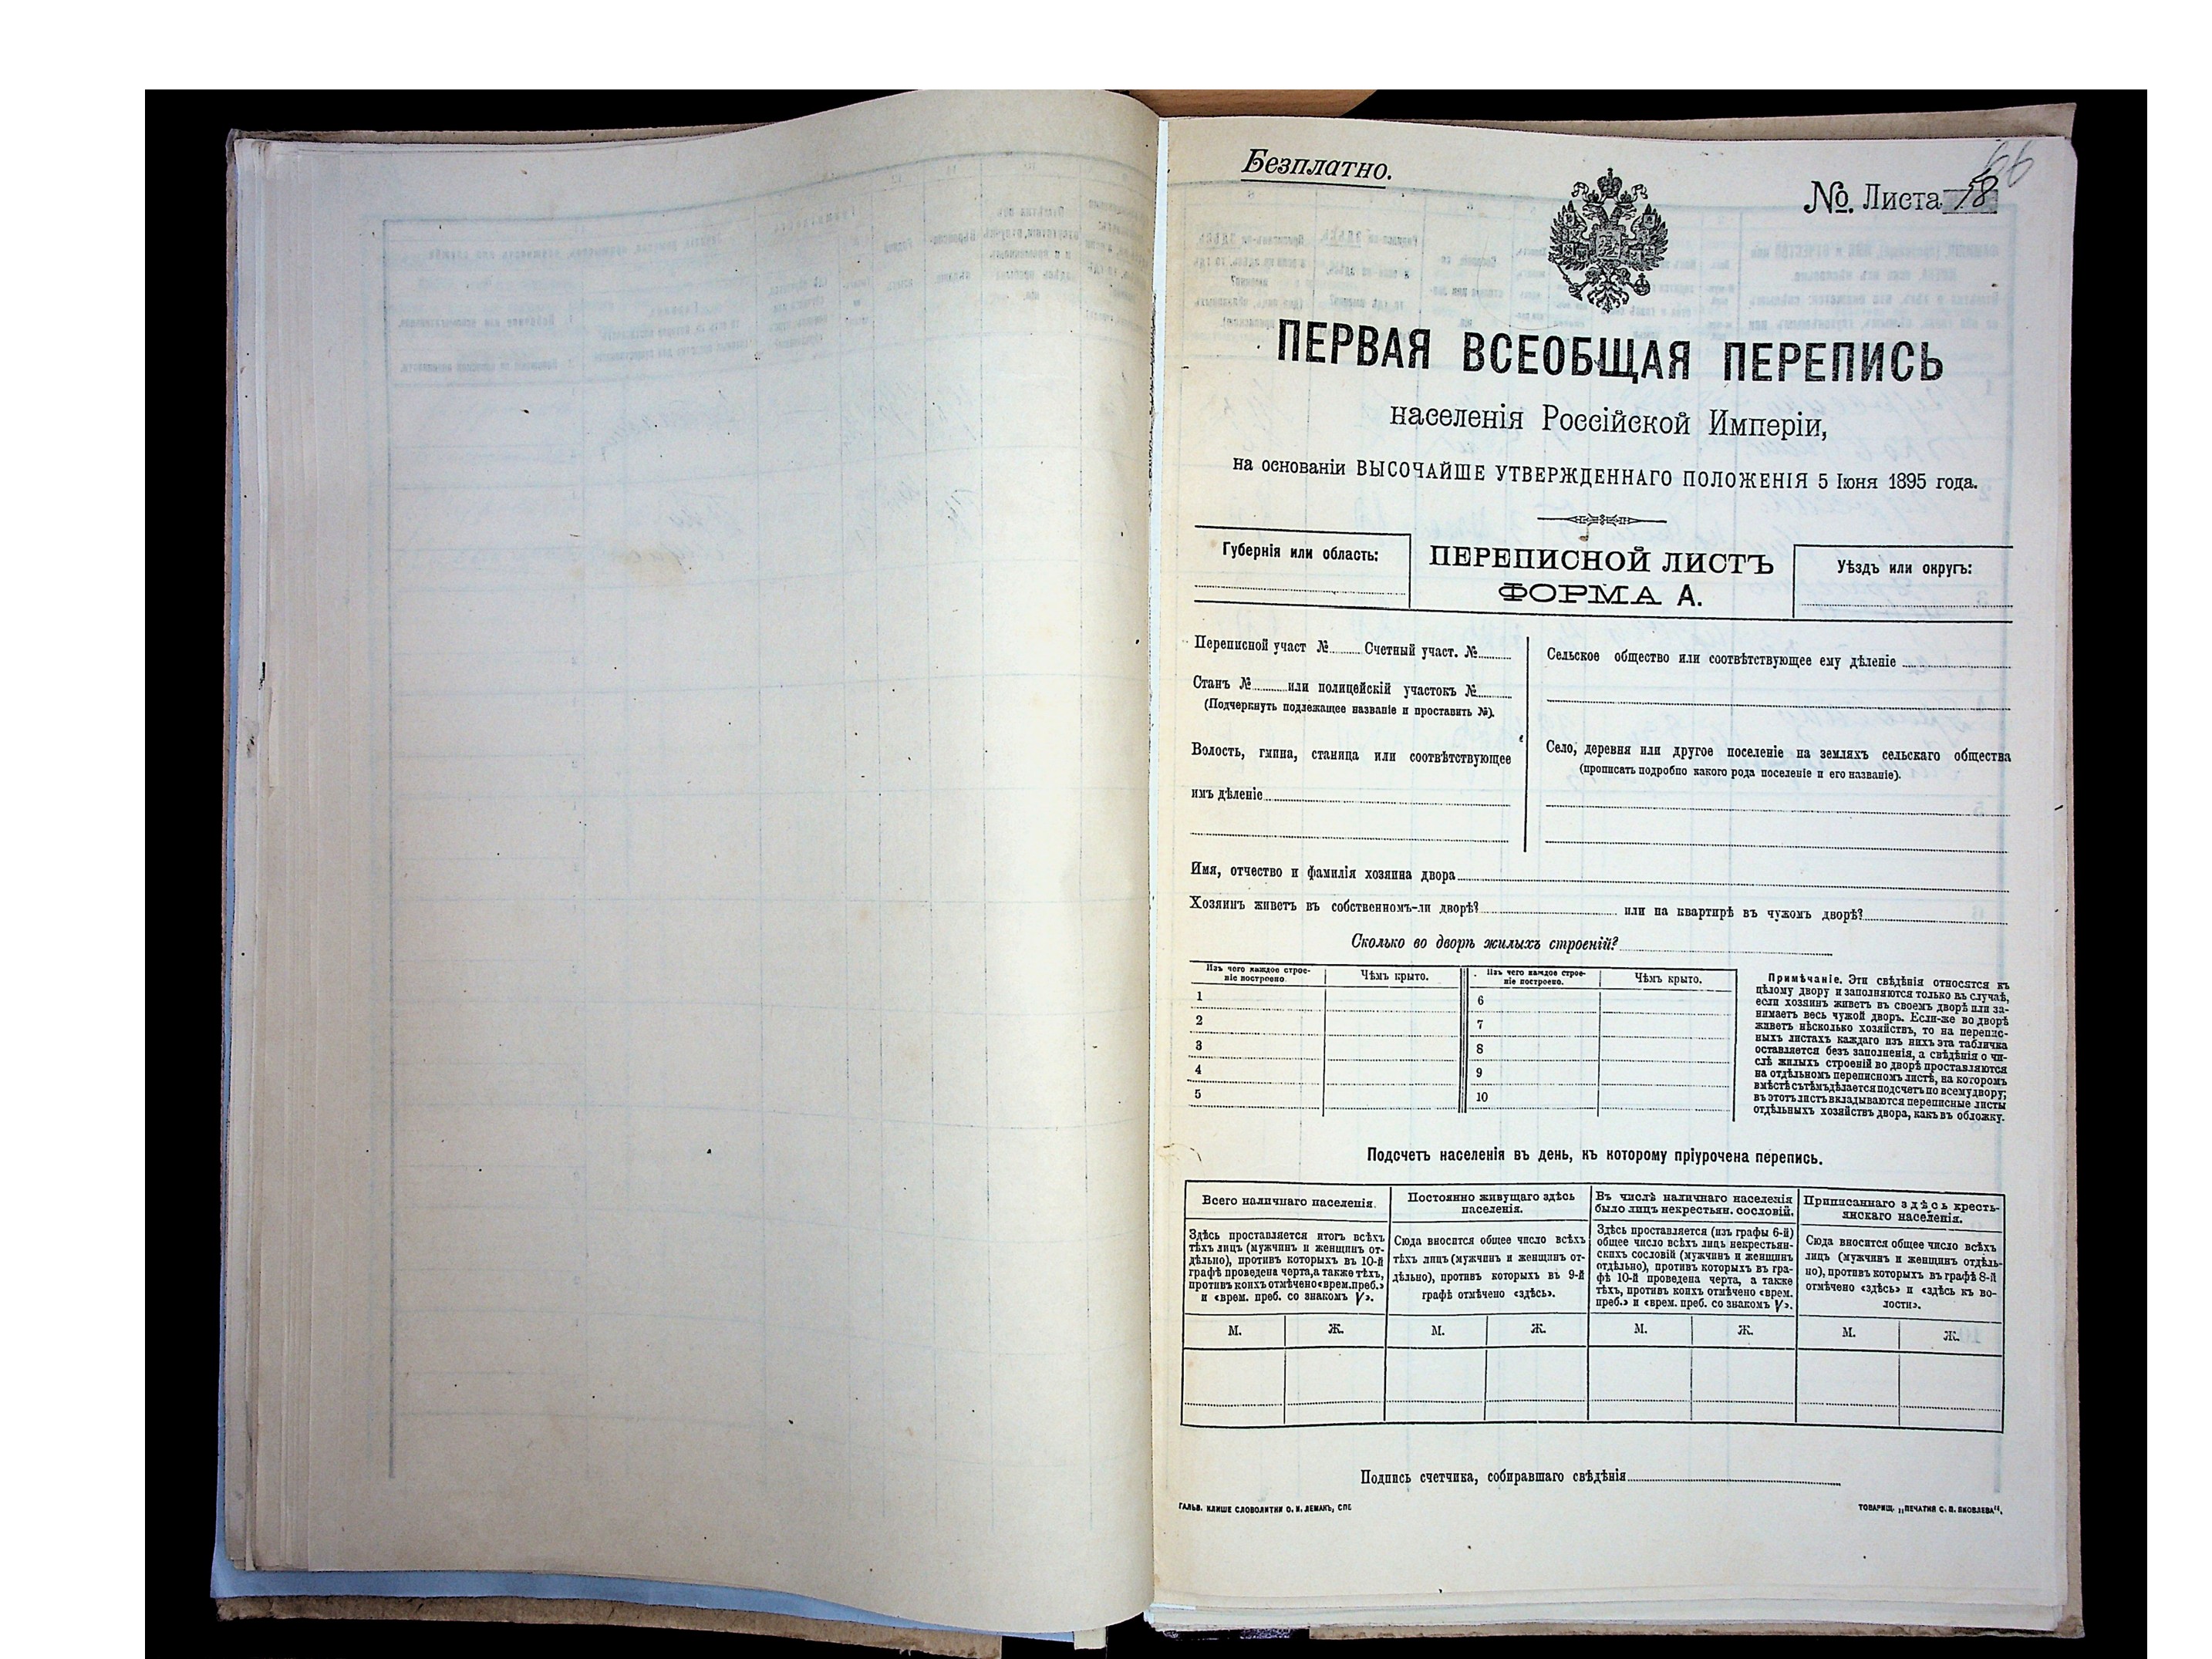 Безплатно.
66
№. Листа 18
ПЕРВАЯ ВСЕОБЩАЯ ПЕРЕПИСЬ
населенія Россійской Имперіи,
на основаніи ВЫСОЧАЙШЕ УТВЕРЖДЕННАГО ПОЛОЖЕНІЯ 5 Іюня 1895 года.
Губернія или область:
ПЕРЕПИСНОЙ ЛИСТЪ
ФОРМА А.
Уѣздъ или округъ:
Переписной участ № Счетный участ. №
Станъ № или полицейскій участокъ №
(Подчеркнуть подлежащее названіе и проставить №).
Волость, гмина, станица или соотвѣтствующее
имъ дѣленіе
Сельское общество или соотвѣтствующее ему дѣленіе
Село, деревня или другое поселеніе на земляхъ сельскаго общества
(прописать подробно какого рода поселеніе и его названіе).
Имя, отчество и фамилія хозяина двора
Хозяинъ живетъ въ собственномъ-ли дворѣ? или на квартирѣ въ чужомъ дворѣ?
Сколько во дворѣ жилыхъ строеній?
Изъ чего каждое строе-
ніе построено.
Чѣмъ крыто.
Изъ чего каждое строе-
ніе построено.
Чѣмъ крыто.
1
6
2
7
3
8
4
9
5
10
Примѣчаніе. Эти свѣдѣнія относятся къ
цѣлому двору и заполняются только въ случаѣ,
если хозяинъ живетъ въ своемъ дворѣ или за-
нимаетъ весь чужой дворъ. Если-же во дворѣ
живетъ нѣсколько хозяйствъ, то на перепис-
ныхъ листахъ каждаго изъ нихъ эта табличка
оставляется безъ заполненія, а свѣдѣнія о чи-
слѣ жилыхъ строеній во дворѣ проставляются
на отдѣльномъ переписномъ листѣ, на которомъ
вмѣстѣ съ тѣмъ дѣлается подсчетъ по всему двору;
въ этотъ листъ вкладываются переписные листы
отдѣльныхъ хозяйствъ двора, какъ въ обложку.
Подсчетъ населенія въ день, къ которому пріурочена перепись.
Всего наличнаго населенія.
Здѣсь проставляется итогъ всѣхъ
тѣхъ лицъ (мужчинъ и женщинъ от-
дѣльно), противъ которыхъ въ 10-й
графѣ проведена черта, а также тѣхъ,
противъ коихъ отмѣчено «врем. преб.»
и «врем. преб. со знакомъ V».
Постоянно живущаго здѣсь
населенія.
Сюда вносится общее число всѣхъ
тѣхъ лицъ (мужчинъ и женщинъ от-
дѣльно), противъ которыхъ въ 9-й
графѣ отмѣчено «здѣсь».
Въ числѣ наличнаго населенія
было лицъ некрестьян. сословій.
Здѣсь проставляется (изъ графы 6-й)
общее число всѣхъ лицъ некрестьян-
скихъ сословій (мужчинъ и женщинъ
отдѣльно), противъ которыхъ въ гра-
фѣ 10-й проведена черта, а также
тѣхъ, противъ коихъ отмѣчено «врем.
преб.» и «врем. преб. со знакомъ V».
Приписаннаго здѣсь кресть-
янскаго населенія.
Сюда вносится общее число всѣхъ
лицъ (мужчинъ и женщинъ отдѣль-
но), противъ которыхъ въ графѣ 8-й
отмѣчено «здѣсь» и «здѣсь къ во-
лости».
М. Ж. М. Ж. М. Ж. М. Ж.
Подпись счетчика, собиравшаго свѣдѣнія
ГАЛЬВ. КЛИШЕ СЛОВОЛИТНИ О. И. ЛЕМАНЪ, СПБ
ТОВАРИЩ. „ПЕЧАТНЯ С. П. ЯКОВЛЕВА“.